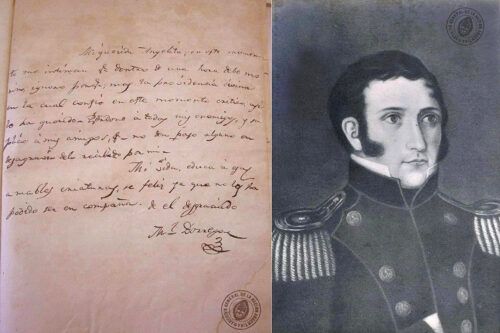 Mi querida Angelita: en este momen
to me intiman q. dentro de una hora debo mo
rir ignoro porq.; mas la providencia divina
en la cual confio en este momento critico asi
lo ha querido. Perdono a todos mis enemigos, y su
plico a mis amigos, q. no den paso alguno en
desagravio de lo recibido por mi
Mi vida, educa a esas
amables criaturas, se feliz, ya que no lo has
podido ser en compañia de el desgraciado
Ml. Dorrego